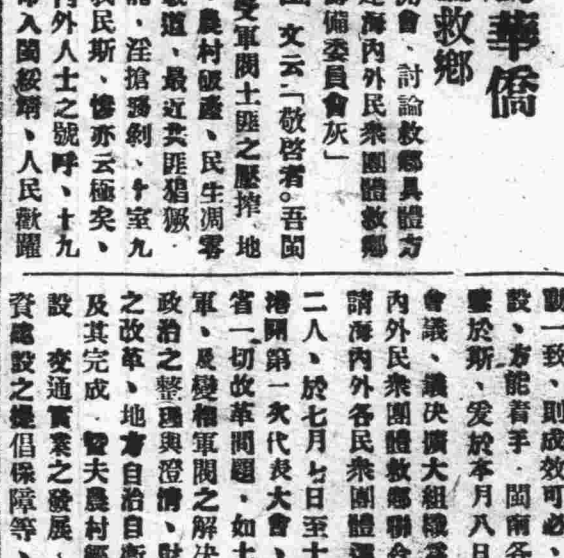 華僑
救鄉
開會、討論救鄉具體方
海內外民衆團體救鄉
備委員會灰」
文云「敬啓者。吾閩
受軍閥土匪之壓搾、地
農村破產、民生凋零
道、最近共匪猖獗、
淫搶剝、十室九
民斯、慘亦云極矣、
內外人士之號呼、十九
入閩綏靖、人民歡躍
動一致、則成效可必、
設、方能着手、閩南各
鑒於斯、爰於本月八日
會議、議決擴大組織
內外民衆團體救鄉聯會
請海內外各民衆團體
二人、於七月七日至十
港開第一次代表大會、
省一切改革問題、如土
軍、及變相軍閥之解決
政治之整理與澄清、財
之改革、地方自治自衛
及其完成 暨夫農村經
設 交通實業之發展、
資建設之提倡保障等、